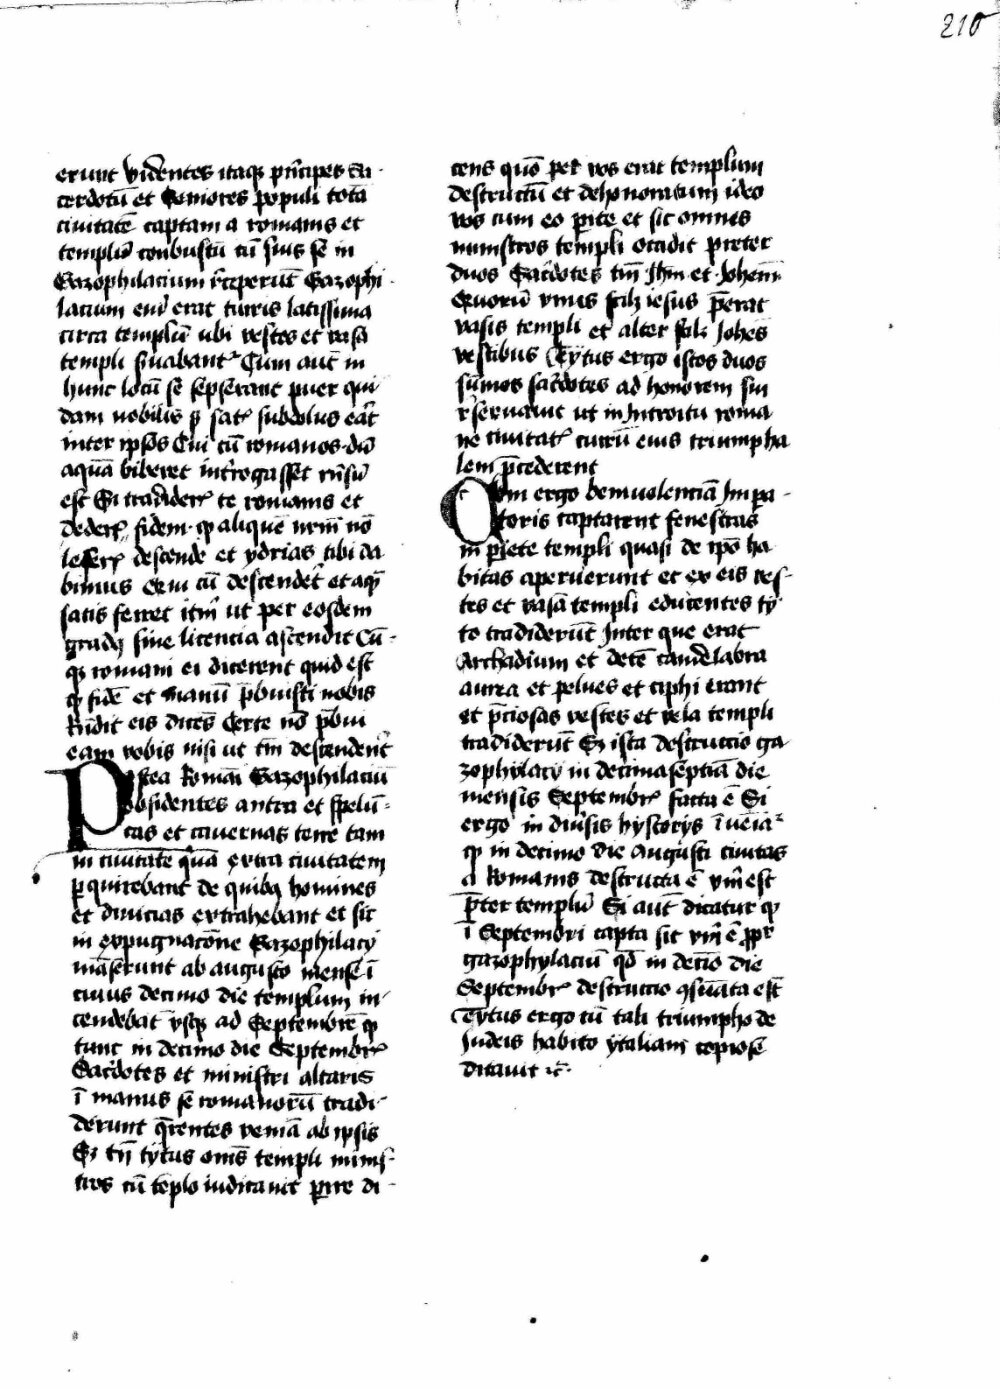 210
erunt videntes itaqꝫ pͥncipes sa-
cerdotū et seniores populi totā
ciuitatē captam a romanis et
templū conbustū cū suis se in
Gazophilacium rͤceperūt Gazophi-
lacium eni erat turis latissima
circa templū ubi vestes et vasa
templi suabantᷣ Cum autē in
hunc locū se sepserant puer qui
dam nobilis s satᷣ subdolus eāt
inter ipsos Cui cū romanos dū
aquā biberet introgasset rn̄sū
est Si tradiderᷣ te romanis et
dederᷣ fidem ꝙ aliquē nrm̄ nō
leserᷣ descende et ydrias tibi da
bimus Qui cū descendet et aqᷓ
satis ferret itm̄ ut per eosdem
gradꝰ sine licencia ascendit Cū-
qꝫ romani ei dicerent quid est
ꝙ fidē et manū p̄buisti nobis
Rn̄dit eis dicēs Certe nō p̄bui
eam vobis nisi ut tm̄ descendert
Postea Romāi Gazophilaciū
obsidentes antra et spelū-
cas et cauernas terre tam
in ciuitate quā extra ciuitatem
ꝑquirebant de quibꝰ homines
et diuicias extrahebant et sic
in expugnacōne Gazophilacy
māserunt ab augusto mense ī
cuius decimo die templum in-
cendebāt vsqꝫ ad Septembrē ꝙ
tunc in decimo die Septembrᷣ
Sacdotes et ministri altaris
ī manus se romanorū tradi-
derunt q̄rentes veniā ab ipsis
Sꝫ tn̄ tytus om̄s templi minis-
tros cū tēplo iudicauit ꝑire di-
cens quō per vos erat templum
destructū et dehonoratum ideo
vos cum eo ꝑite et sic omnes
ministros templi occidit preter
duos Sacdotes tm̄ Jhm̄ et Johem̄
Quorū vnus sciꝫ iesus p̄erat
vasis templi et alter sciꝫ Johes
vestibus Tytus ergo istos duos
sūmos sacdotes ad honorem sui
rͤseruauit ut in Introitu roma
ne ciuitatᷣ currū eius triumpha
lem p̄cederent
Om ergo beniuolenciā Impa-
toris captarent fenestras
in ꝑiete templi quasi de ipō ha
bitas aperuerunt et ex eis ves-
tes et vasā templi educentes ty
to tradiderūt Inter que erat
Archadium et decē candelabra
aurea et pelues et ciphi erant
et p̄ciosas vestes et vela templi
tradiderūt Sꝫ ista destruccio ga
zophylacy in decima septiā die
mensis Septembrᷣ facta ē Si
ergo in diusis hystorys īueiaᷣ
ꝙ in decimo die Augusti ciuitas
a Romanis destructa ē vm̄ est
p̄ter templū Si autē dicatur ꝙ
ī Septembri capta sit vm̄ ē ꝓpr
gazophylaciū qd̄ in decīo die
Septembrᷣ destruccio ꝯsūata est
Tytus ergo cū tali triumpho de
Judeis habito ytaliam copiose
ditauit ⁊c̄.